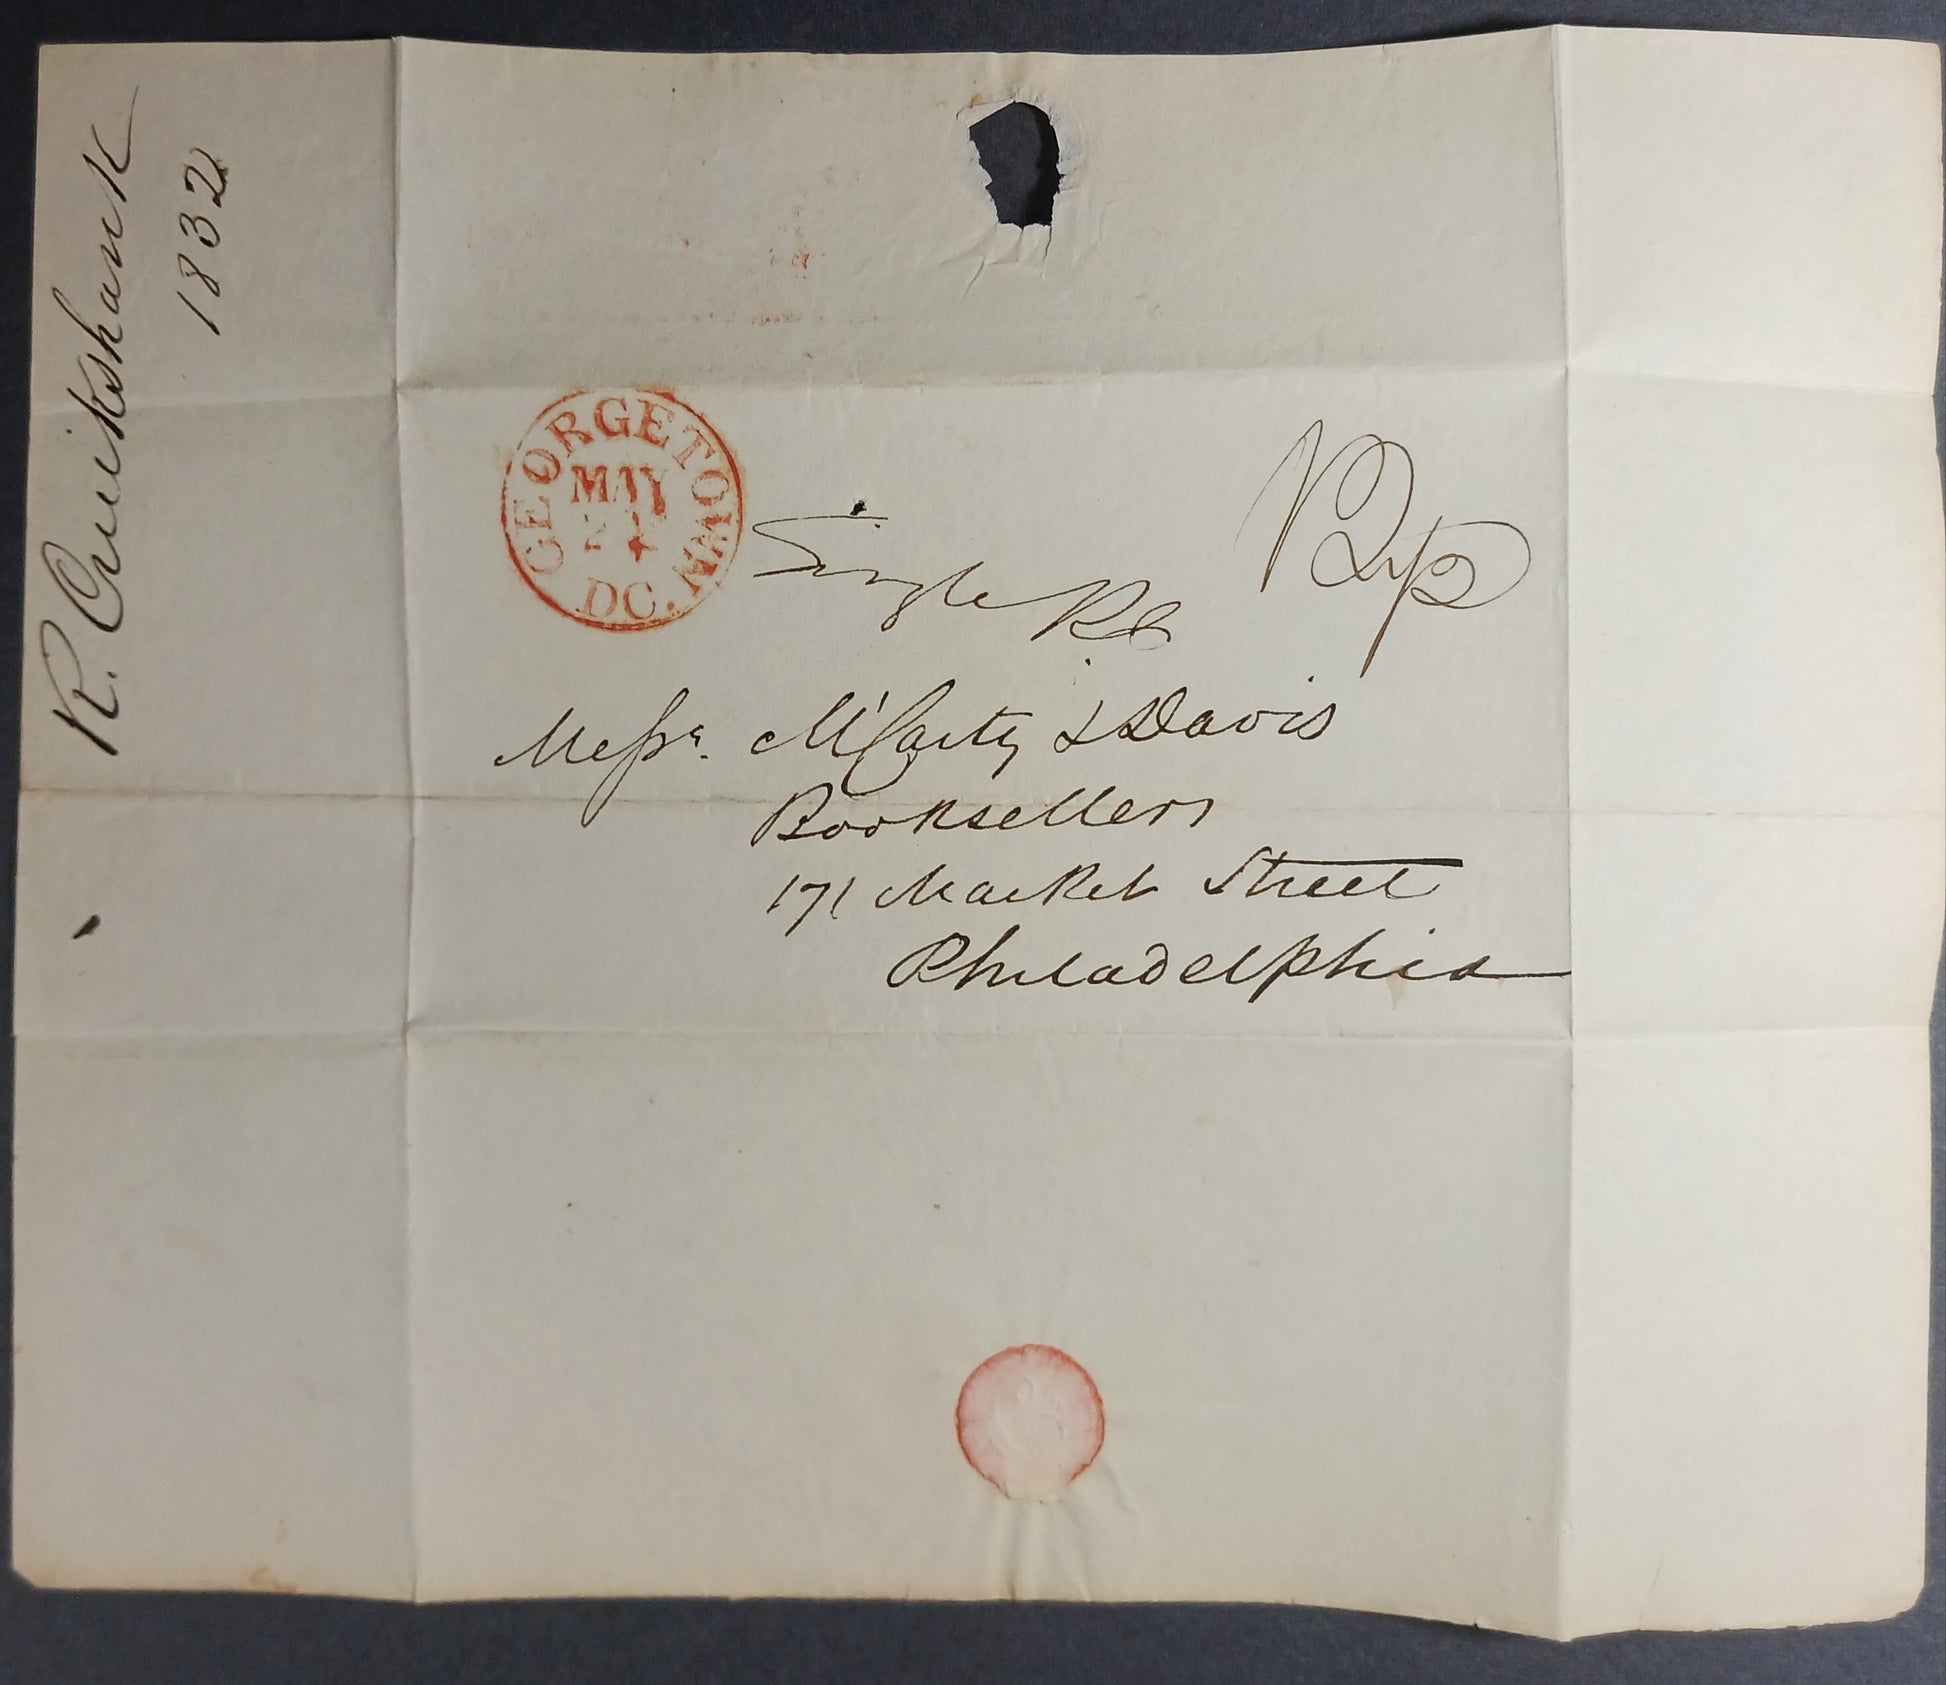 R. Cruikshank
1832
GEORGETOWN
MAY
DC.
Single
12 1/2
Messrs. M'Carty & Davis
Booksellers
171 Market Street
Philadelphia